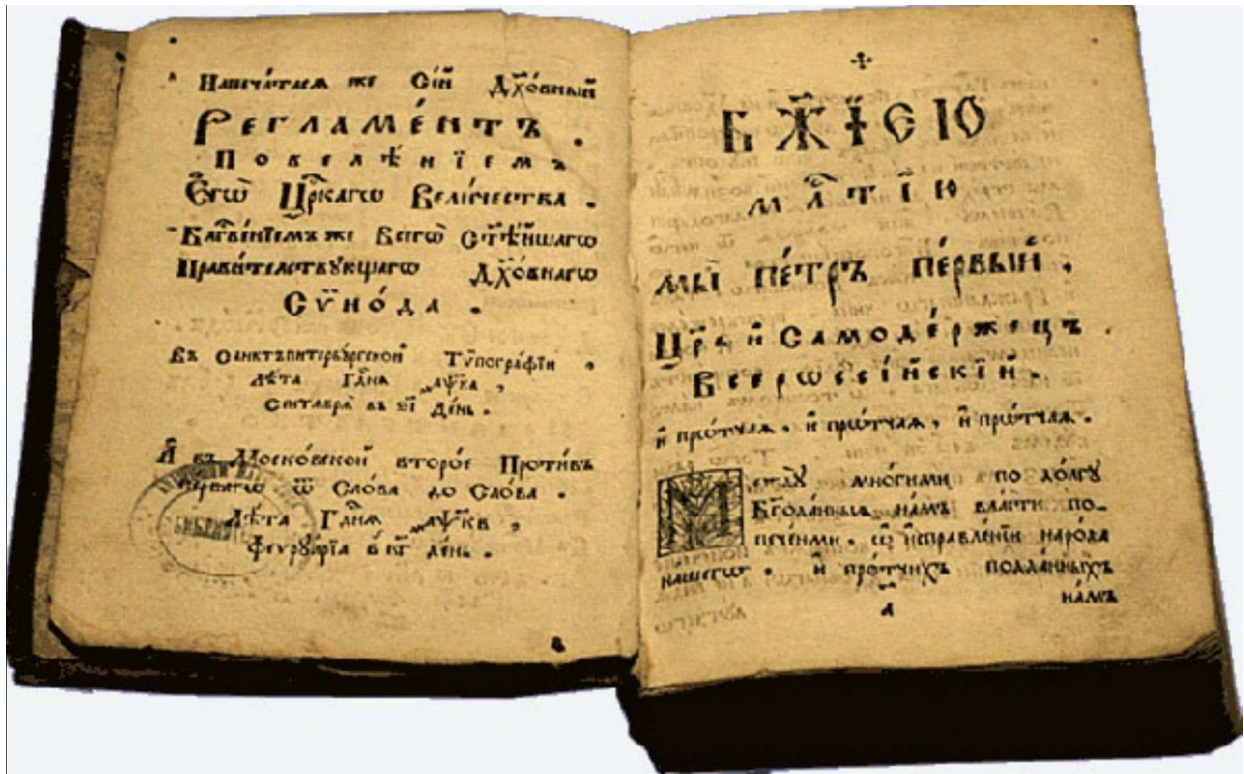 Напеча́тася же Сі́й Дх҃о́вный
Регла́ментъ.
Повелѣ́нїемъ
Егѡ̀ Цр҃кагѡ Вели́чества.
Бл҃гве́нїемъ же Всегѡ̀ Ст҃ѣ́йшагѡ
Прави́телствꙋющагѡ Дх҃о́внагѡ
Сѷно́да.
Въ Санктъпитербꙋ́ргской Тѷпографі́и,
Лѣ́та Гд҃ня ҂аѱ҃ка,
Септаврїа въ
де́нь.
И҆ въ Моско́вской второ́е Проти́въ
первагѡ ѿ Сло́ва до Сло́ва.
Лѣ́та Гд҃ня ҂аѱ҃кв,
Феврꙋа́рїа в к҃г де́нь.
Б Ж҃ ІЕЮ
мл҃тїю
мы̀ пе́тръ пе́рвый,
Цр҃ь и҆ Самоде́ржецъ
Всерѡссі́йскїй.
и҆ прѡ́тчая, и҆ прѡ́тчая, и҆ прѡ́тчая.
Междꙋ̀ мно́гими по до́лгꙋ
Бг҃ода́нныѧ на́мъ вла́сти по-
пече́нми, ѡ҆ и҆справле́нїи наро́да
нашегѡ, и҆ прѡ́тчихъ подда́нныхъ
а҃
на́мъ